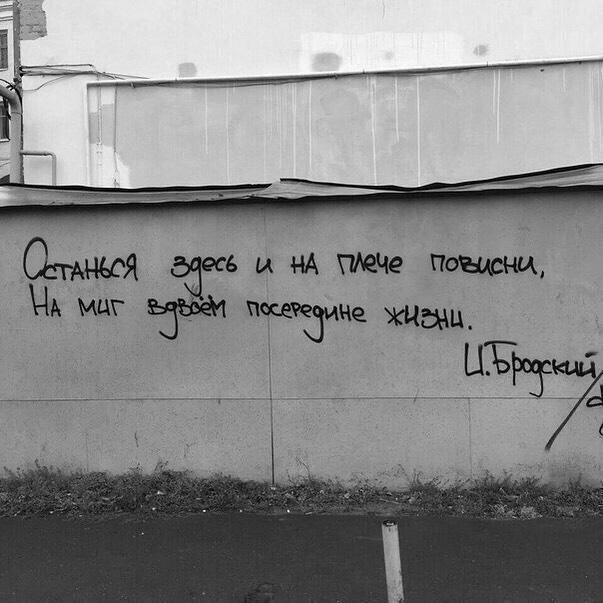 Останься здесь и на плече повисни,
На миг вдвоём посередине жизни.
И.Бродский